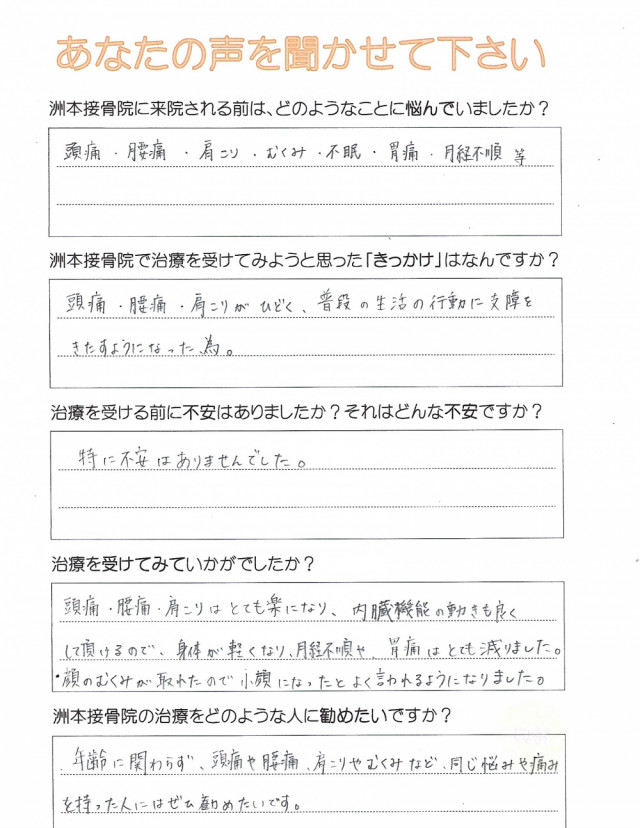 あなたの声を聞かせて下さい
洲本接骨院に来院される前は、どのようなことに悩んでいましたか？
頭痛・腰痛・肩こり・むくみ・不眠・胃痛・月経不順 等
洲本接骨院で治療を受けてみようと思った「きっかけ」はなんですか？
頭痛・腰痛・肩こりがひどく、普段の生活の行動に支障を
きたすようになった為。
治療を受ける前に不安はありましたか？それはどんな不安ですか？
特に不安はありませんでした。
治療を受けてみていかがでしたか？
頭痛・腰痛・肩こりはとても楽になり、内臓機能の動きも良く
して頂けるので、身体が軽くなり、月経不順や、胃痛はとても減りました。
・顔のむくみが取れたので小顔になったとよく言われるようになりました。
洲本接骨院の治療をどのような人に勧めたいですか？
年齢に関わらず、頭痛や腰痛、肩こりやむくみなど、同じ悩みや痛み
を持った人にはぜひ勧めたいです。